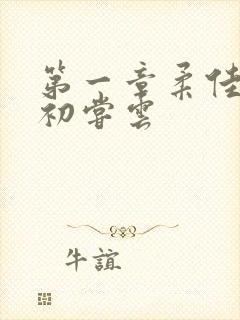 第一章柔佳
初尝云
牛谊